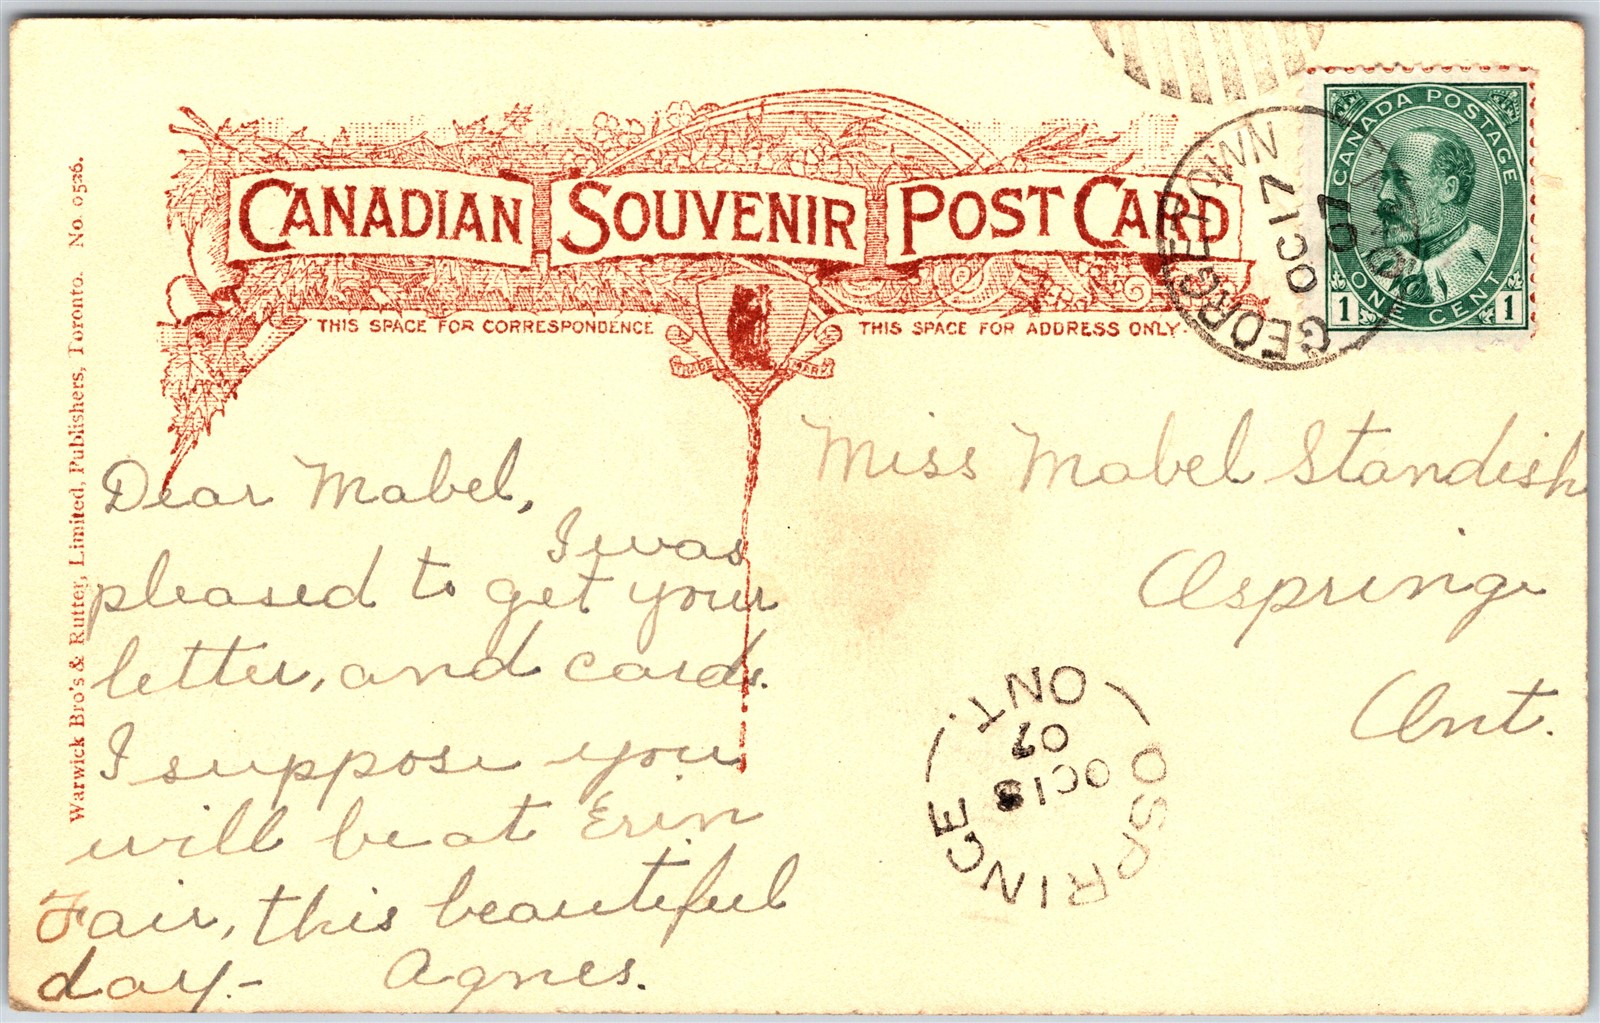 CANADIAN SOUVENIR POST CARD
THIS SPACE FOR CORRESPONDENCE
THIS SPACE FOR ADDRESS ONLY.
TRADE MARK
CANADA POSTAGE
1 ONE CENT 1
GEORGETOWN
OC 17
07
Warwick Bro's & Rutter, Limited, Publishers, Toronto. No. 0526.
Dear Mabel,
I was
pleased to get your
letter, and cards.
I suppose you
will be at Erin
Fair, this beautiful
day.- Agnes.
Miss Mabel Standish
Ospringe
Ont.
OSPRINGE ONT.
OC 18
07